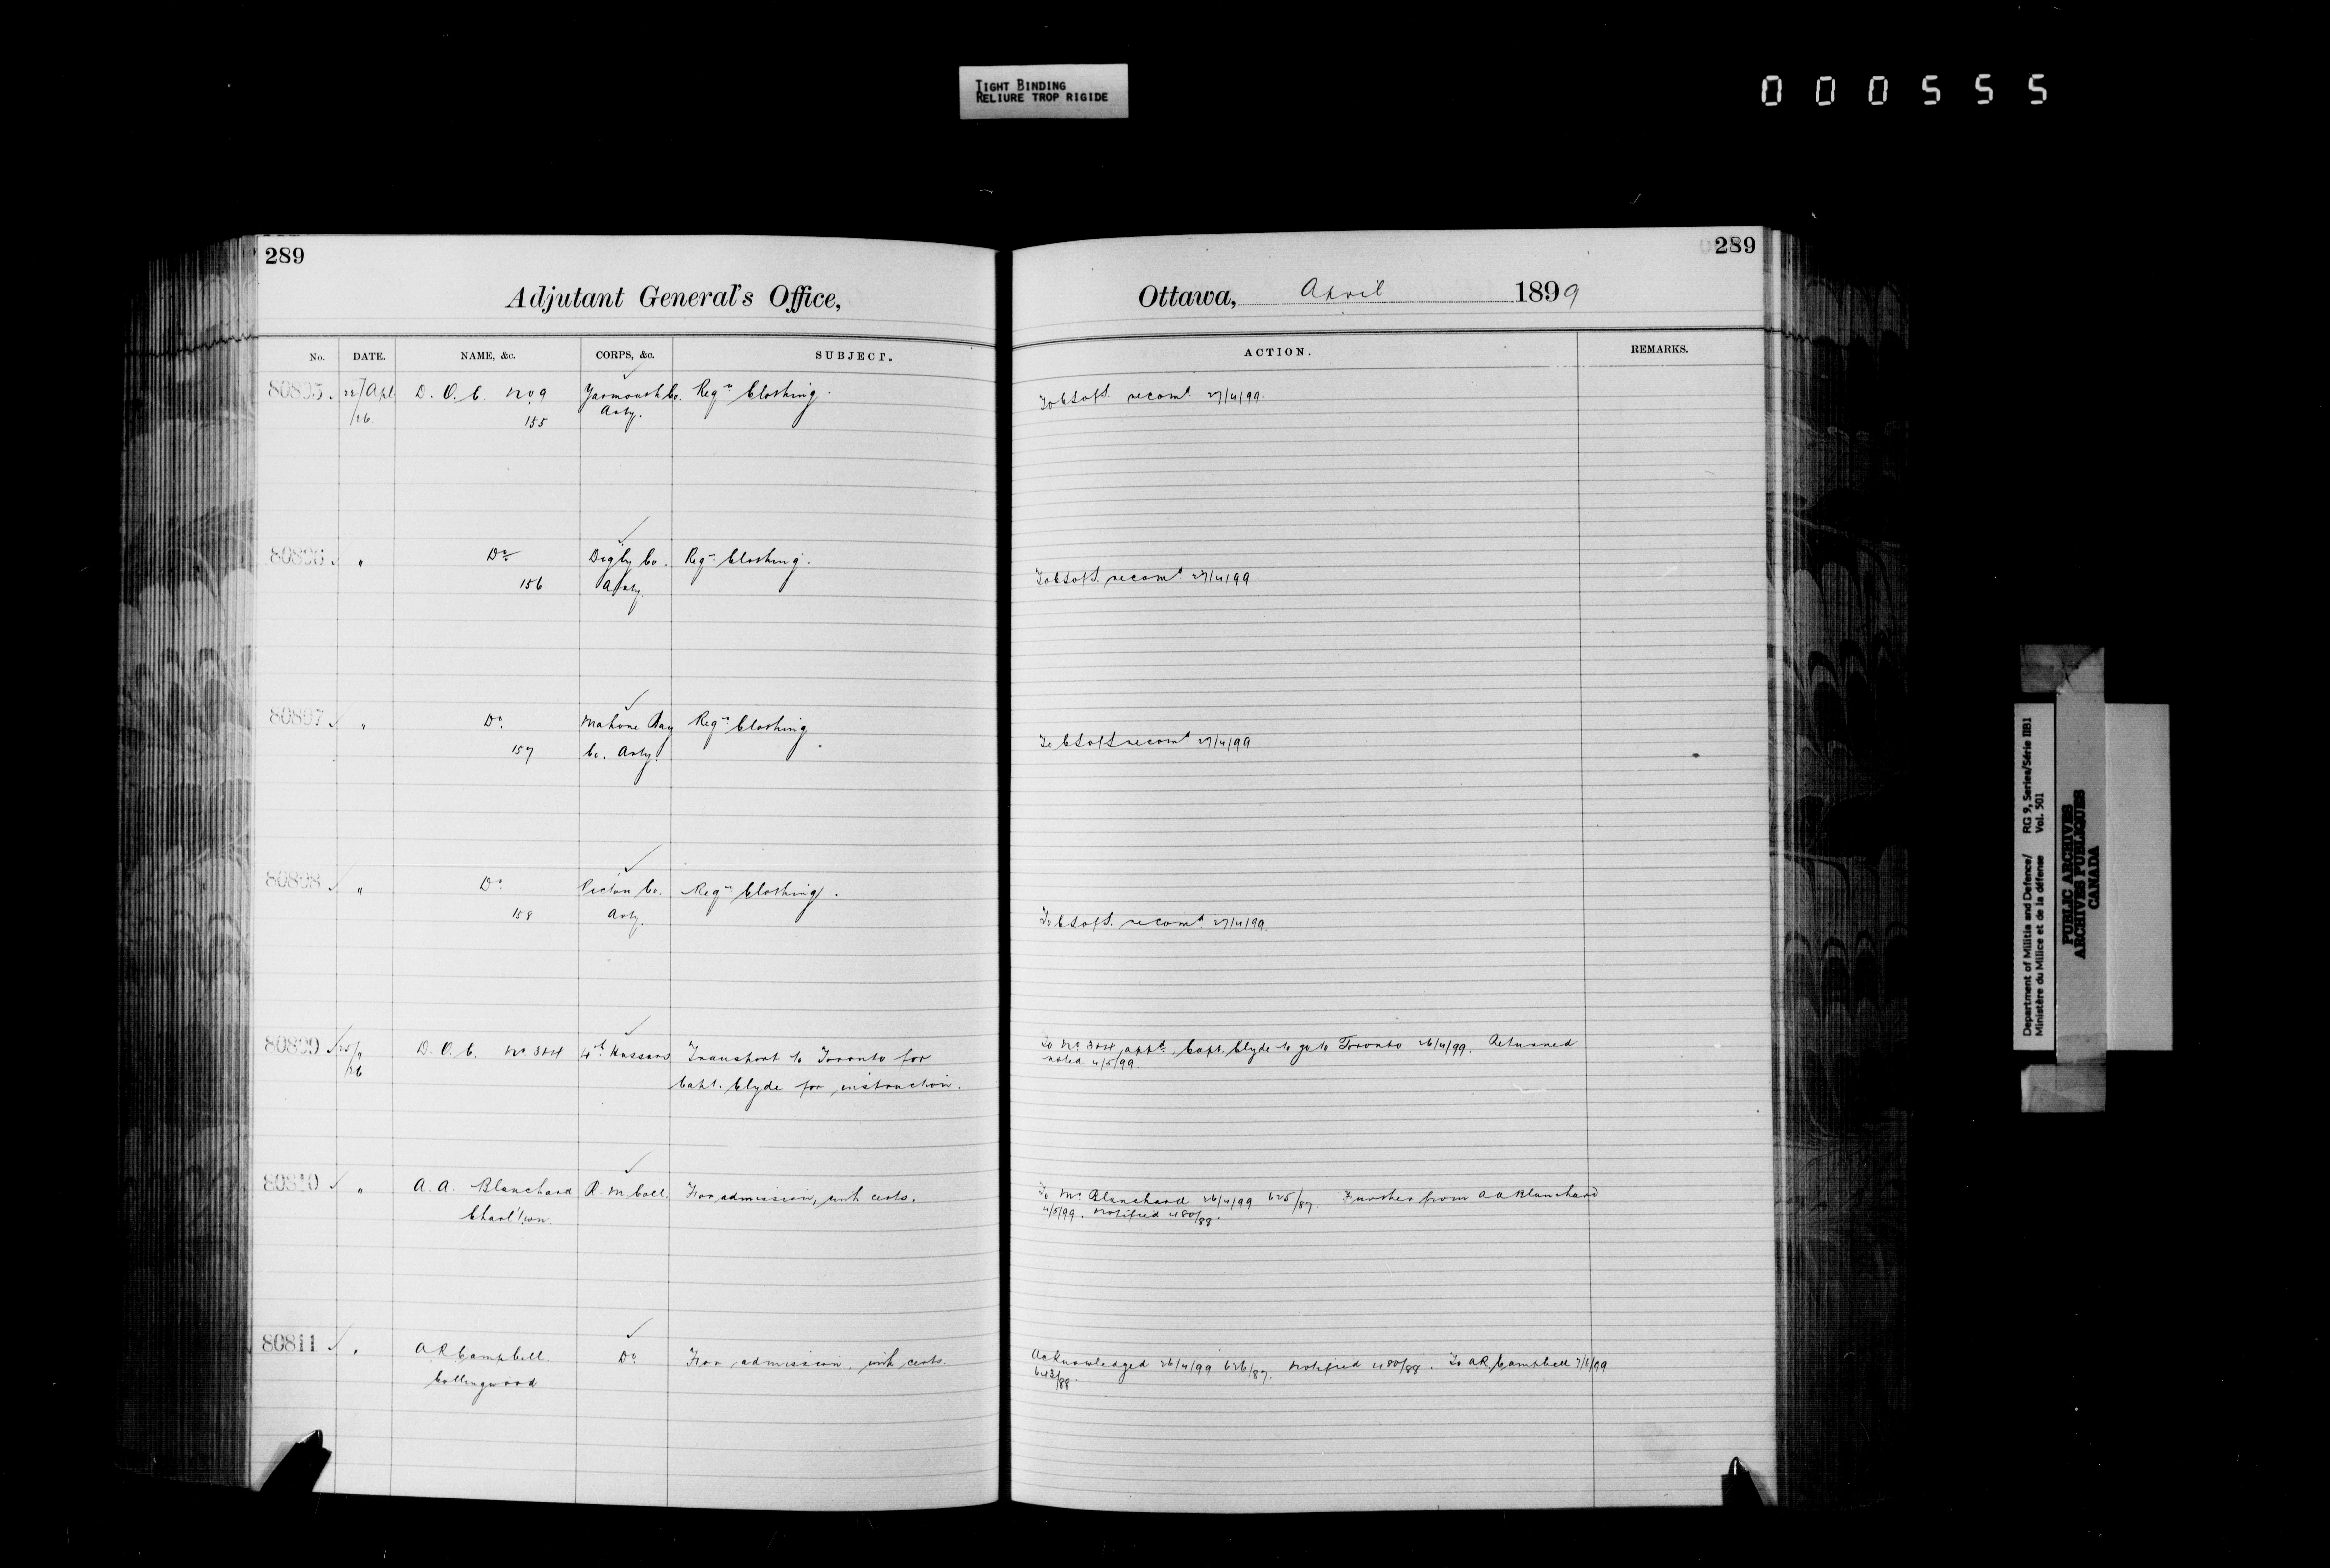 TIGHT BINDING
RELIURE TROP RIGIDE
000555
289
289
Adjutant General's Office,
Ottawa, April 1899
No. DATE. NAME, &c. CORPS, &c. SUBJECT. ACTION. REMARKS.
80805. 22/Apl D. O. C. No 9 Yarmouth Co. Reqn Clothing. To C S of S. recomd. 27/4/99.
/26. 155 Arty.
80806 " Do Digby Co. Reqn Clothing. To C S of S. recomd 27/4/99
156 Arty.
80807 " Do. Mahone Bay Reqn Clothing To C S of S recomd 27/4/99
157 Co. Arty.
80808 " Do. Pictou Co. Reqn Clothing. To C S of S. recomd. 27/4/99.
158 Arty.
80809 25/" D. O. C. No 3&4 4th Hussars Transport to Toronto for To No 3&4, appd. Capt. Clyde to go to Toronto 26/4/99. Returned
/26 Capt. Clyde for instruction. noted 4/5/99.
80810 " A. A. Blanchard R. M. Coll. For admission, with certs. To Mr Blanchard 26/4/99 625/87. Further from A A Blanchard
Charl'town. 4/5/99. Notified 480/88.
80811 " A R Campbell. Do. For admission, with certs. Acknowledged 26/4/99 626/87. Notified 480/88. To A.R. Campbell
Collingwood 643/88.
Department of Militia and Defence/ RG 9, Series/Série IIB1
Ministère du Milice et de la défense Vol. 501
PUBLIC ARCHIVES
ARCHIVES PUBLIQUES
CANADA